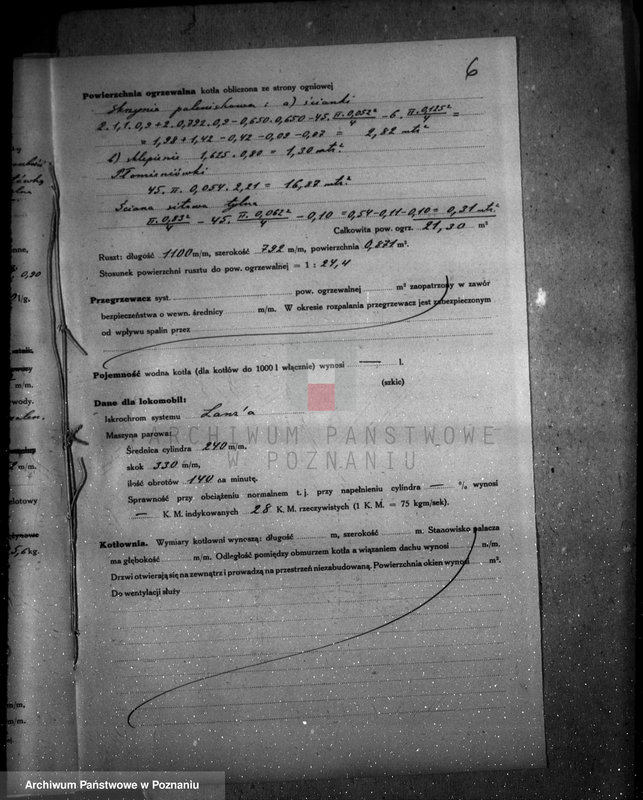 6
Powierzchnia ogrzewalna kotła obliczona ze strony ogniowej
Skrzynia paleniskowa: a) ścianki
2·1,1·0,9+2·0,792·0,9-0,650·0,650-45·π·0,052²/4-6·π·0,125²/4=
= 1,98+1,42-0,42-0,09-0,07 = 2,82 mtr²
b) sklepienie 1,625·0,80 = 1,30 mtr²
Płomieniówki
45·π·0,054·2,21 = 16,87 mtr²
Ściana sitowa tylna
π·0,83²/4 - 45·π·0,062²/4 - 0,10 = 0,54-0,11-0,10 = 0,31 mtr²
Całkowita pow. ogrz. 21,30 m²
Ruszt: długość 1100 m/m, szerokość 792 m/m, powierzchnia 0,871 m².
Stosunek powierzchni rusztu do pow. ogrzewalnej = 1 : 24,4
Przegrzewacz syst. pow. ogrzewalnej m² zaopatrzony w zawór
bezpieczeństwa o wewn. średnicy m/m. W okresie rozpalania przegrzewacz jest zabezpieczonym
od wpływu spalin przez
Pojemność wodna kotła (dla kotłów do 1000 l włącznie) wynosi — l.
(szkic)
Dane dla lokomobil:
Iskrochrom systemu Lanz'a
Maszyna parowa:
Średnica cylindra 240 m/m,
skok 330 m/m,
ilość obrotów 140 na minutę.
Sprawność przy obciążeniu normalnem t. j. przy napełnieniu cylindra — % wynosi
— K. M. indykowanych 28 K. M. rzeczywistych (1 K. M. = 75 kgm/sek).
Kotłownia. Wymiary kotłowni wynoszą: długość m, szerokość m. Stanowisko palacza
ma głębokość m/m. Odległość pomiędzy obmurzem kotła a wiązaniem dachu wynosi m/m.
Drzwi otwierają się na zewnątrz i prowadzą na przestrzeń niezabudowaną. Powierzchnia okien wynosi m².
Do wentylacji służy
ARCHIWUM PAŃSTWOWE
W POZNANIU
Archiwum Państwowe w Poznaniu